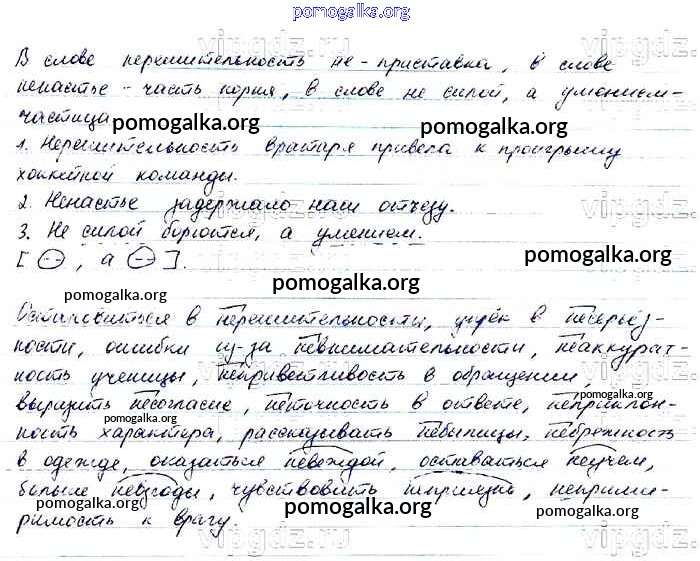 pomogalka.org
В слове нерешительность не-приставка, в слове
ненастье - часть корня, в слове не силой, а умением-
частица
pomogalka.org pomogalka.org
1. Нерешительность вратаря привела к проигрышу
хоккейной команды.
2. Ненастье задержало наш отъезд.
3. Не силой борются, а умением.
pomogalka.org
[ , а ].
pomogalka.org
Остановиться в нерешительности, упрёк в несерьёз-
ности, ошибки из-за невнимательности, неаккурат-
pomogalka.org pomogalka.org
ность ученицы, неприветливость в обращении,
выразить несогласие, неточность в ответе, непреклон-
pomogalka.org pomogalka.org
ность характера, рассказывать небылицы, небрежность
в одежде, оказаться невеждой, оставаться неучем,
pomogalka.org
больше невзгоды, чувствовать неприязнь, неприми-
pomogalka.org pomogalka.org
римость к врагу.
vipgdz.ru